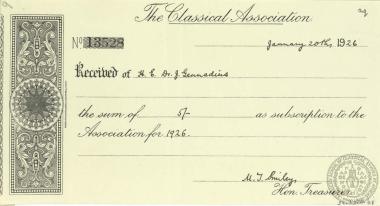 The Classical Association
No 13528
January 20th, 1926
Received of H. E. Dr. J. Gennadius
the sum of 5/- as subscription to the
Association for 1926.
M. J. Smiley
Hon. Treasurer